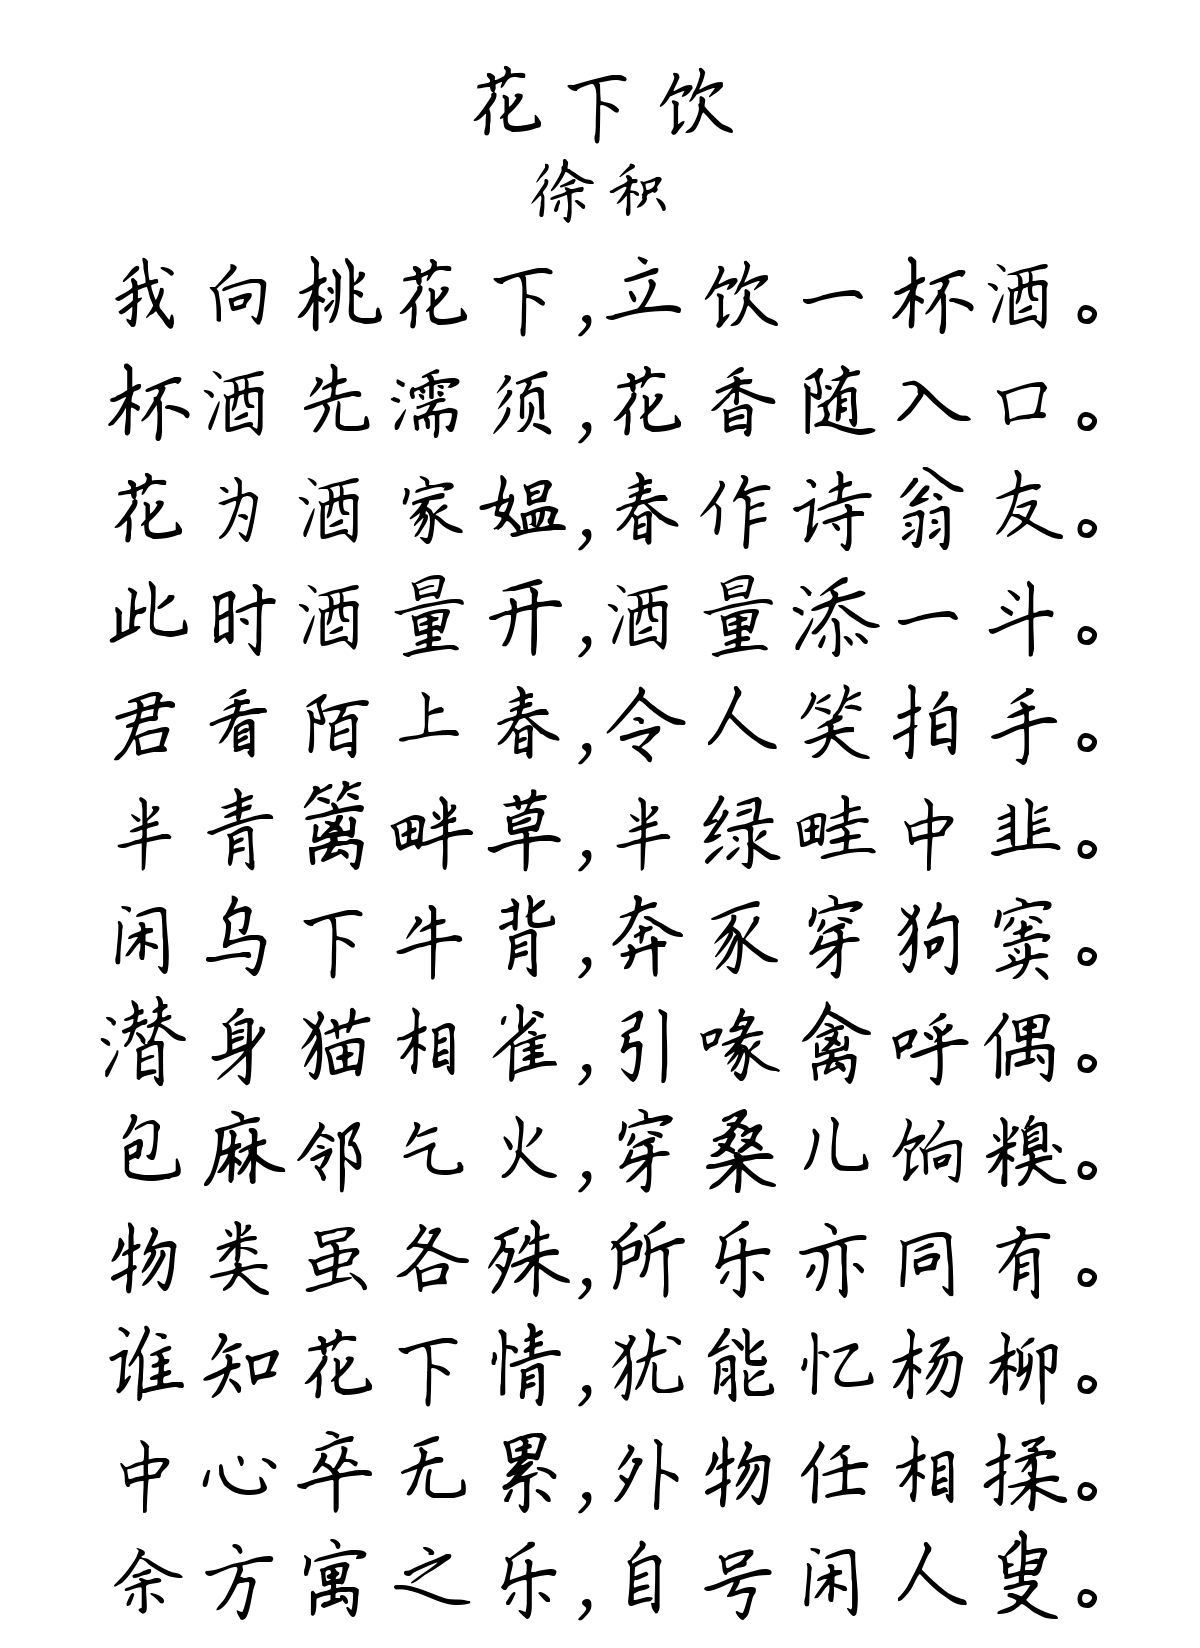 花下饮
徐积
我向桃花下,立饮一杯酒。
杯酒先濡须,花香随入口。
花为酒家媪,春作诗翁友。
此时酒量开,酒量添一斗。
君看陌上春,令人笑拍手。
半青篱畔草,半绿畦中韭。
闲乌下牛背,奔豕穿狗窦。
潜身猫相雀,引喙禽呼偶。
包麻邻乞火,穿桑儿饷糗。
物类虽各殊,所乐亦同有。
谁知花下情,犹能忆杨柳。
中心卒无累,外物任相揉。
余方寓之乐,自号闲人叟。